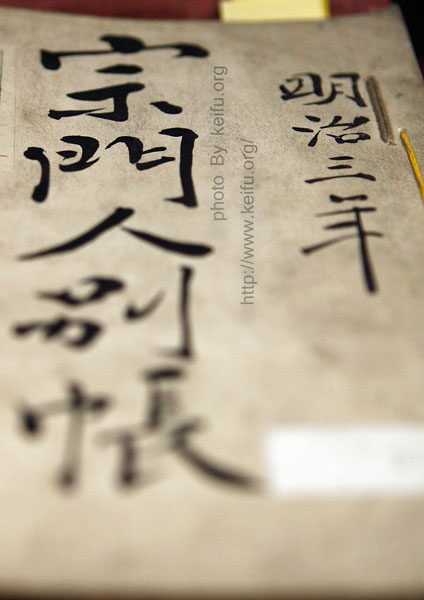 明治三年
宗門人別帳
photo By keifu.org
http://www.keifu.org/